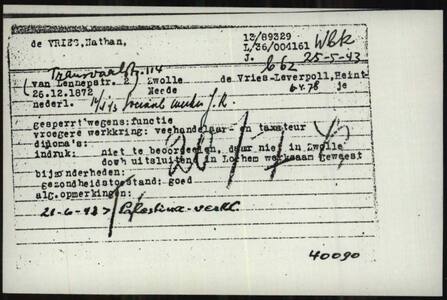 de VRIES, Nathan,
13/89329
L/36/004161 Wbk
J. 662 25-5-43
Transvaalstr. 114
van Lennepstr. 2, Zwolle de Vries-Leverpoll, Heint-
26.12.1872 Neede 6.4.78 je
nederl. sociale werker J.R.
gesperrt wegens: functie
vroegere werkkring: veehandelaar- en taxateur
diploma's:
indruk: niet te beoordeelen, daar niet in Zwolle
doch uitsluitend in Lochem werkzaam geweest
bijzonderheden:
gezondheidstoestand: goed
alg. opmerkingen:
21-6-43 > Palestina-verkl.
40090